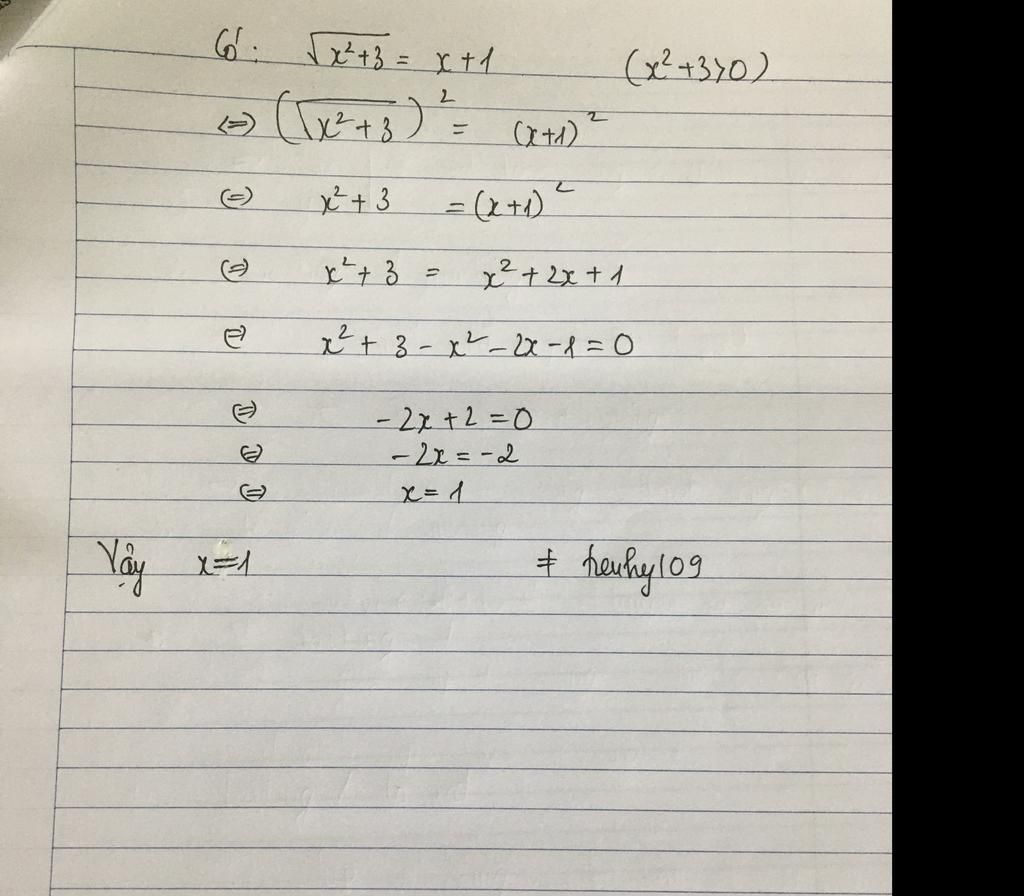 Có: √(x²+3) = x+1 (x²+3>0)
⇔ (√(x²+3))² = (x+1)²
⇔ x²+3 = (x+1)²
⇔ x²+3 = x²+2x+1
⇔ x²+3-x²-2x-1=0
⇔ -2x+2=0
⇔ -2x=-2
⇔ x=1
Vậy x=1